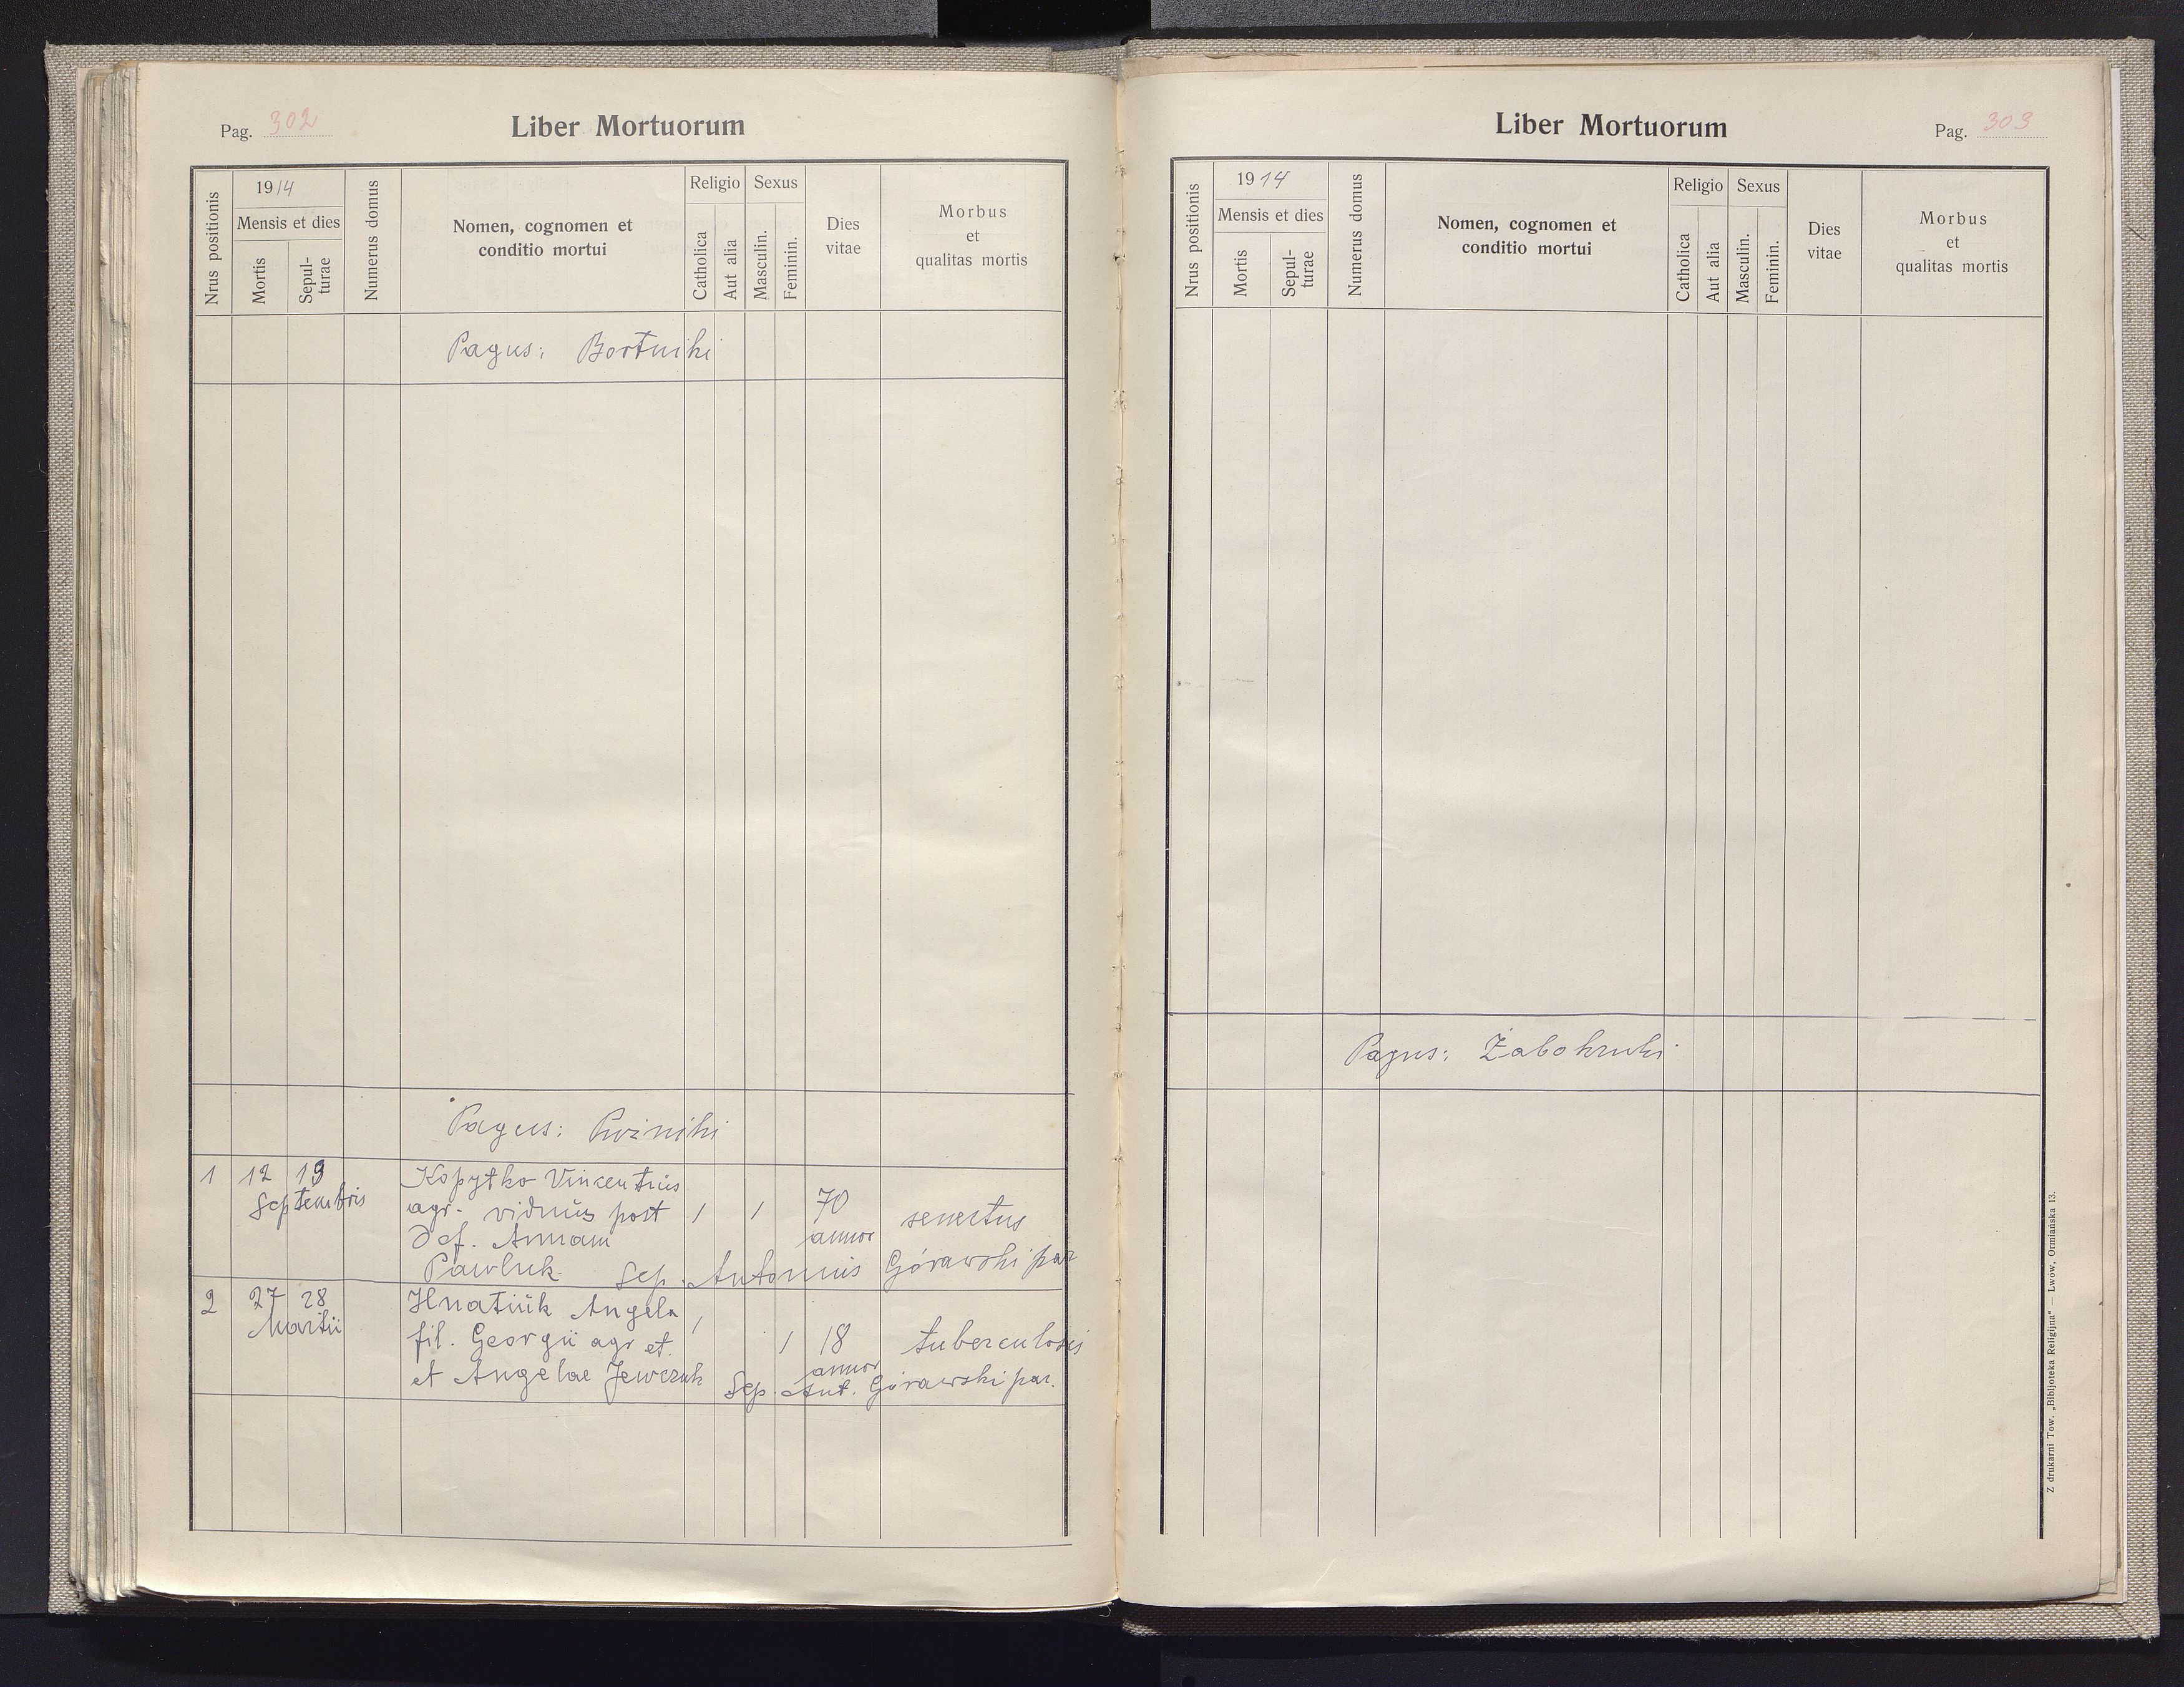 Pag. 302
Liber Mortuorum
Nrus positionis
1914
Mensis et dies
Mortis
Sepul-
turae
Numerus domus
Nomen, cognomen et
conditio mortui
Religio
Catholica
Aut alia
Sexus
Masculin.
Feminin.
Dies
vitae
Morbus
et
qualitas mortis
Pagus: Bortniki
Pagus:
1 12 19
Septembris
Kopytko Vincentius
agr. viduus post
def. Annam
Pawluk
1 1 70
annor
senectus
Sep. Antonius Górawski par
2 27 28
Martii
Hnatiuk Angela
fil. Georgii agr et
et Angelae Jewczuk
1 1 18
annor
tuberculosis
Sep. Ant. Górawski par.
Liber Mortuorum
Pag. 303
Nrus positionis
1914
Mensis et dies
Mortis
Sepul-
turae
Numerus domus
Nomen, cognomen et
conditio mortui
Religio
Catholica
Aut alia
Sexus
Masculin.
Feminin.
Dies
vitae
Morbus
et
qualitas mortis
Pagus: Żabokruki
Z drukarni Tow. „Bibljoteka Religijna" — Lwów, Ormiańska 13.